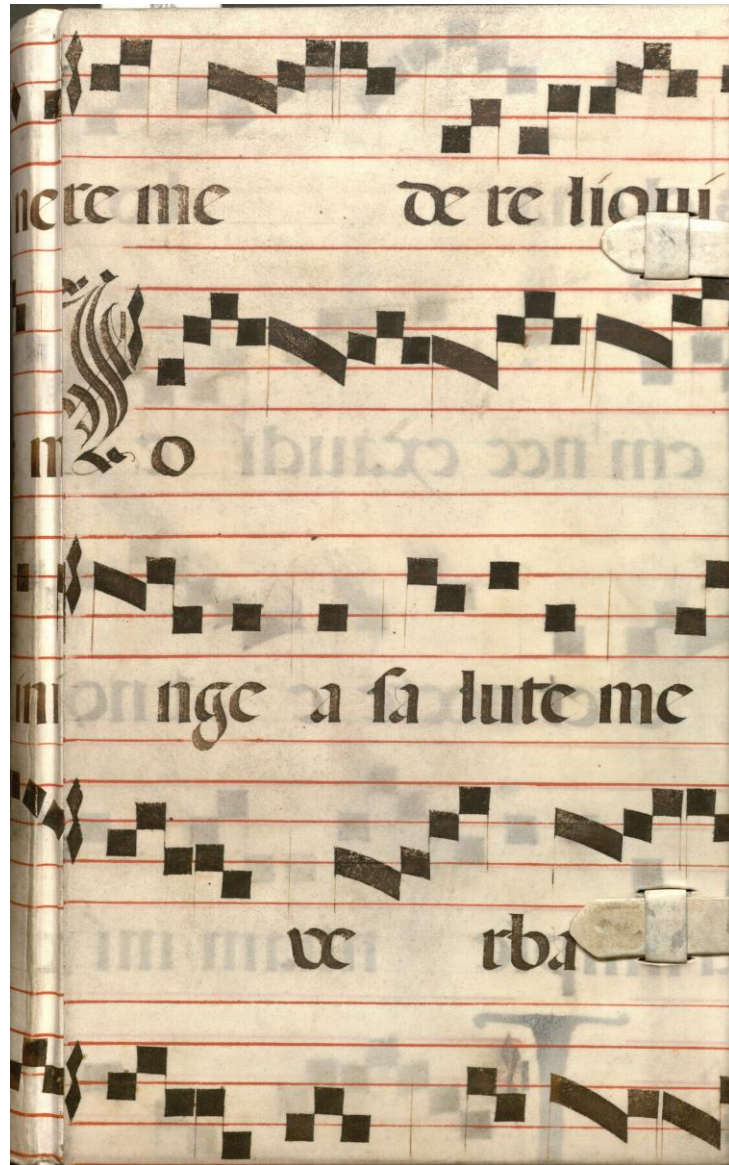 nere me de re liqui
o
nge a sa lute me
ve rba